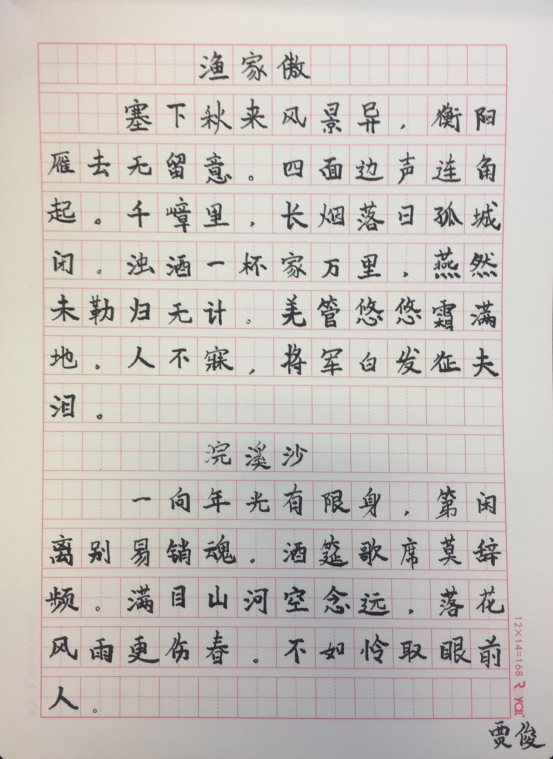 渔家傲
塞下秋来风景异，衡阳
雁去无留意。四面边声连角
起。千嶂里，长烟落日孤城
闭。浊酒一杯家万里，燕然
未勒归无计。羌管悠悠霜满
地。人不寐，将军白发征夫
泪。
浣溪沙
一向年光有限身，第闲
离别易销魂。酒筵歌席莫辞
频。满目山河空念远，落花
风雨更伤春。不如怜取眼前
人。
12×14=168
贾俊